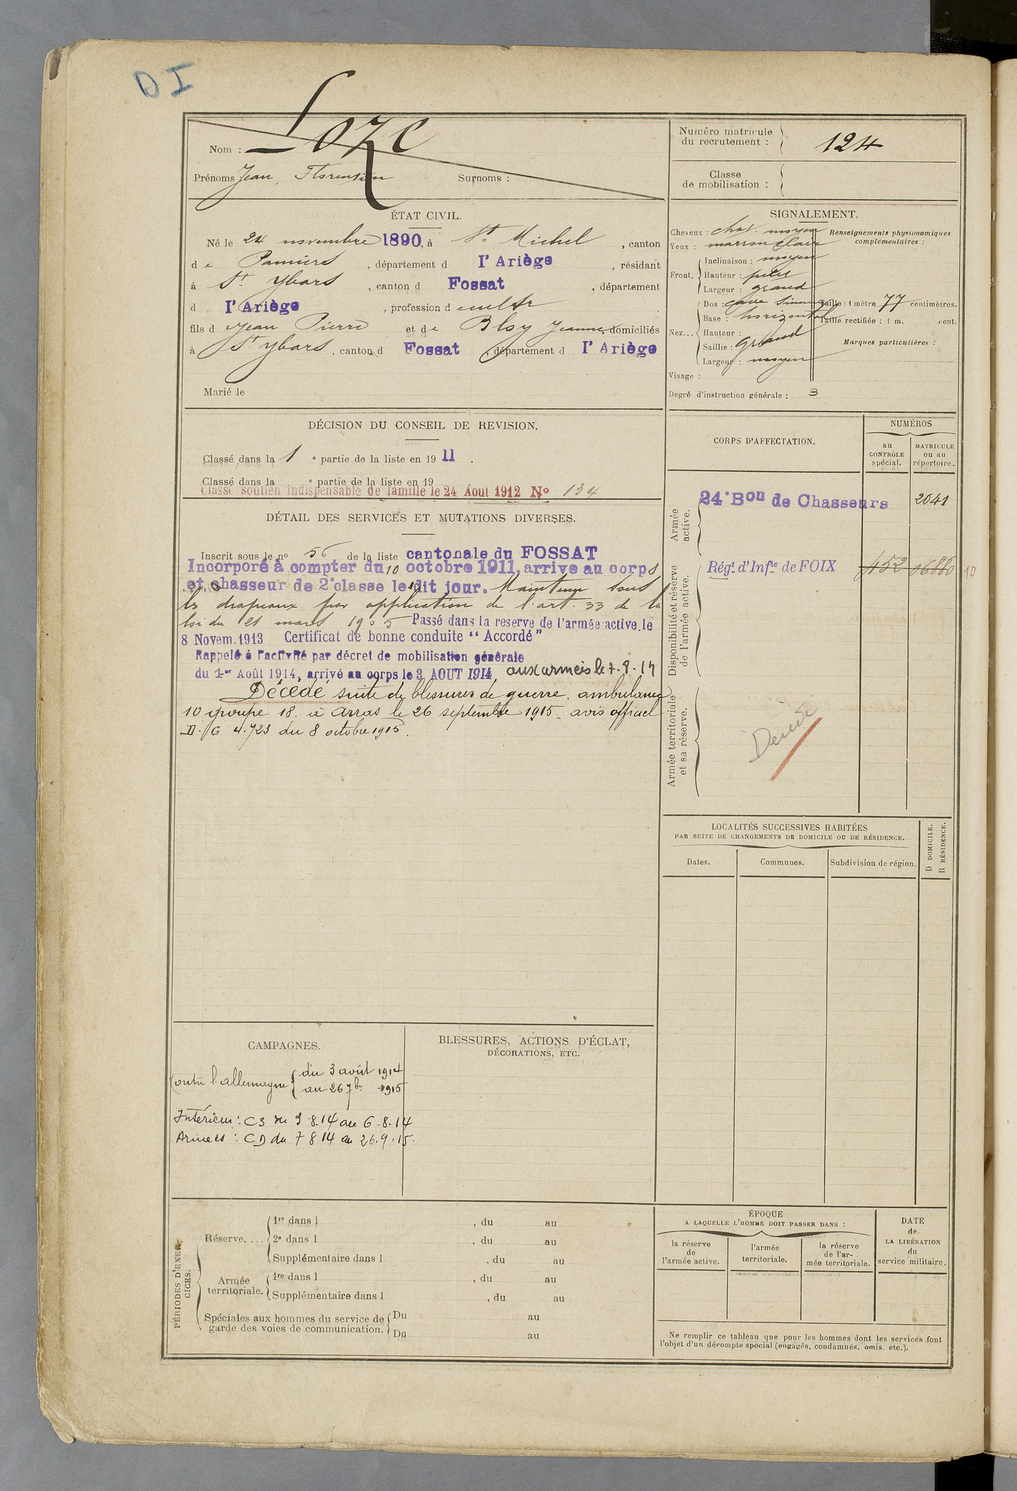 DI
Nom : Loze
Prénoms Jean, Florentin Surnoms :
Numéro matricule du recrutement : 124
Classe de mobilisation :
ÉTAT CIVIL.
Né le 24 novembre 1890, à St Michel, canton
de Pamiers, département d l'Ariège, résidant
à St Ybars, canton d Fossat, département
d l'Ariège, profession d cultr
fils d Jean Pierre et de Bloy Jeanne domiciliés
à St Ybars, canton d Fossat, département d l'Ariège
Marié le
SIGNALEMENT.
Cheveux : chat. moyen
Yeux : marron clair
Renseignements physionomiques complémentaires :
Front. Inclinaison : moyen
Hauteur : petit
Largeur : grand
Nez... Dos : cave sinueux
Base : horizontal
Hauteur :
Saillie : grand
Largeur : moyen
Taille : 1 mètre 77 centimètres.
Taille rectifiée : 1 m. cent.
Marques particulières :
Visage :
Degré d'instruction générale : 3
DÉCISION DU CONSEIL DE REVISION.
Classé dans la 1 e partie de la liste en 19 11.
Classé dans la e partie de la liste en 19
Classé soutien indispensable de famille le 24 Aout 1912 No 134
DÉTAIL DES SERVICES ET MUTATIONS DIVERSES.
Inscrit sous le no 56 de la liste cantonale du FOSSAT
Incorporé à compter du 10 octobre 1911, arrive au corps
et chasseur de 2e classe le dit jour. Maintenu sous
les drapeaux par application de l'art. 33 de la
loi du 21 mars 1905 Passé dans la réserve de l'armée active, le
8 Novem. 1913 Certificat de bonne conduite "Accordé"
Rappelé à l'activité par décret de mobilisation générale
du 1er Août 1914, arrivé au corps le 3 AOUT 1914, aux armées le 7.8.14
Décédé suite de blessures de guerre. ambulance
10 groupe 18. à Arras le 26 septembre 1915. avis officiel
D./G 4.723 du 8 octobre 1915.
CORPS D'AFFECTATION.
NUMÉROS
au CONTRÔLE spécial.
MATRICULE ou au répertoire.
Armée active.
24e Bon de Chasseurs 2041
Disponibilité et réserve de l'armée active.
Régt. d'Infie de FOIX 10
Armée territoriale et sa réserve.
LOCALITÉS SUCCESSIVES HABITÉES
PAR SUITE DE CHANGEMENTS DE DOMICILE OU DE RÉSIDENCE.
Dates. Communes. Subdivision de région.
D DOMICILE. R RÉSIDENCE.
CAMPAGNES.
Contre l'allemagne du 3 août 1914
au 26 7b. 1915
Intérieur : CS du 3.8.14 au 6.8.14
Armées : CD du 7 8 14 au 26.9.15.
BLESSURES, ACTIONS D'ÉCLAT,
DÉCORATIONS, ETC.
PÉRIODES D'EXERCICES.
Réserve.... 1re dans l , du au
2e dans l , du au
Supplémentaire dans l , du au
Armée territoriale. 1re dans l , du au
Supplémentaire dans l , du au
Spéciales aux hommes du service de garde des voies de communication. Du au
Du au
ÉPOQUE
A LAQUELLE L'HOMME DOIT PASSER DANS :
la réserve de l'armée active.
l'armée territoriale.
la réserve de l'armée territoriale.
DATE de LA LIBÉRATION du service militaire.
Ne remplir ce tableau que pour les hommes dont les services font
l'objet d'un décompte spécial (engagés, condamnés, omis, etc.).